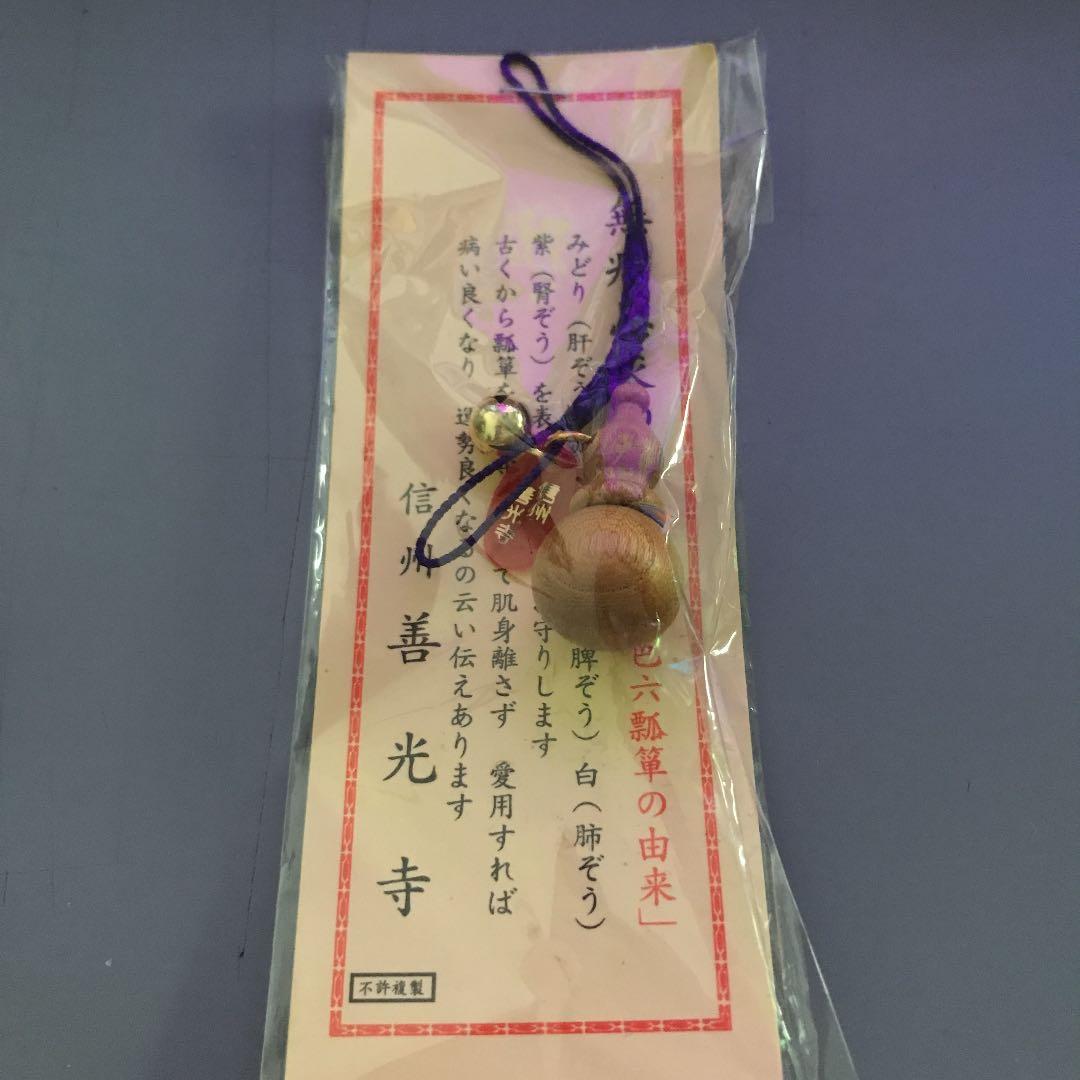 色六瓢箪の由来」
みどり（肝ぞう 脾ぞう）白（肺ぞう）
紫（腎ぞう）を表 守りします
古くから瓢箪を て肌身離さず 愛用すれば
病い良くなり 運勢良くなるの云い伝えあります
信州善光寺
不許複製